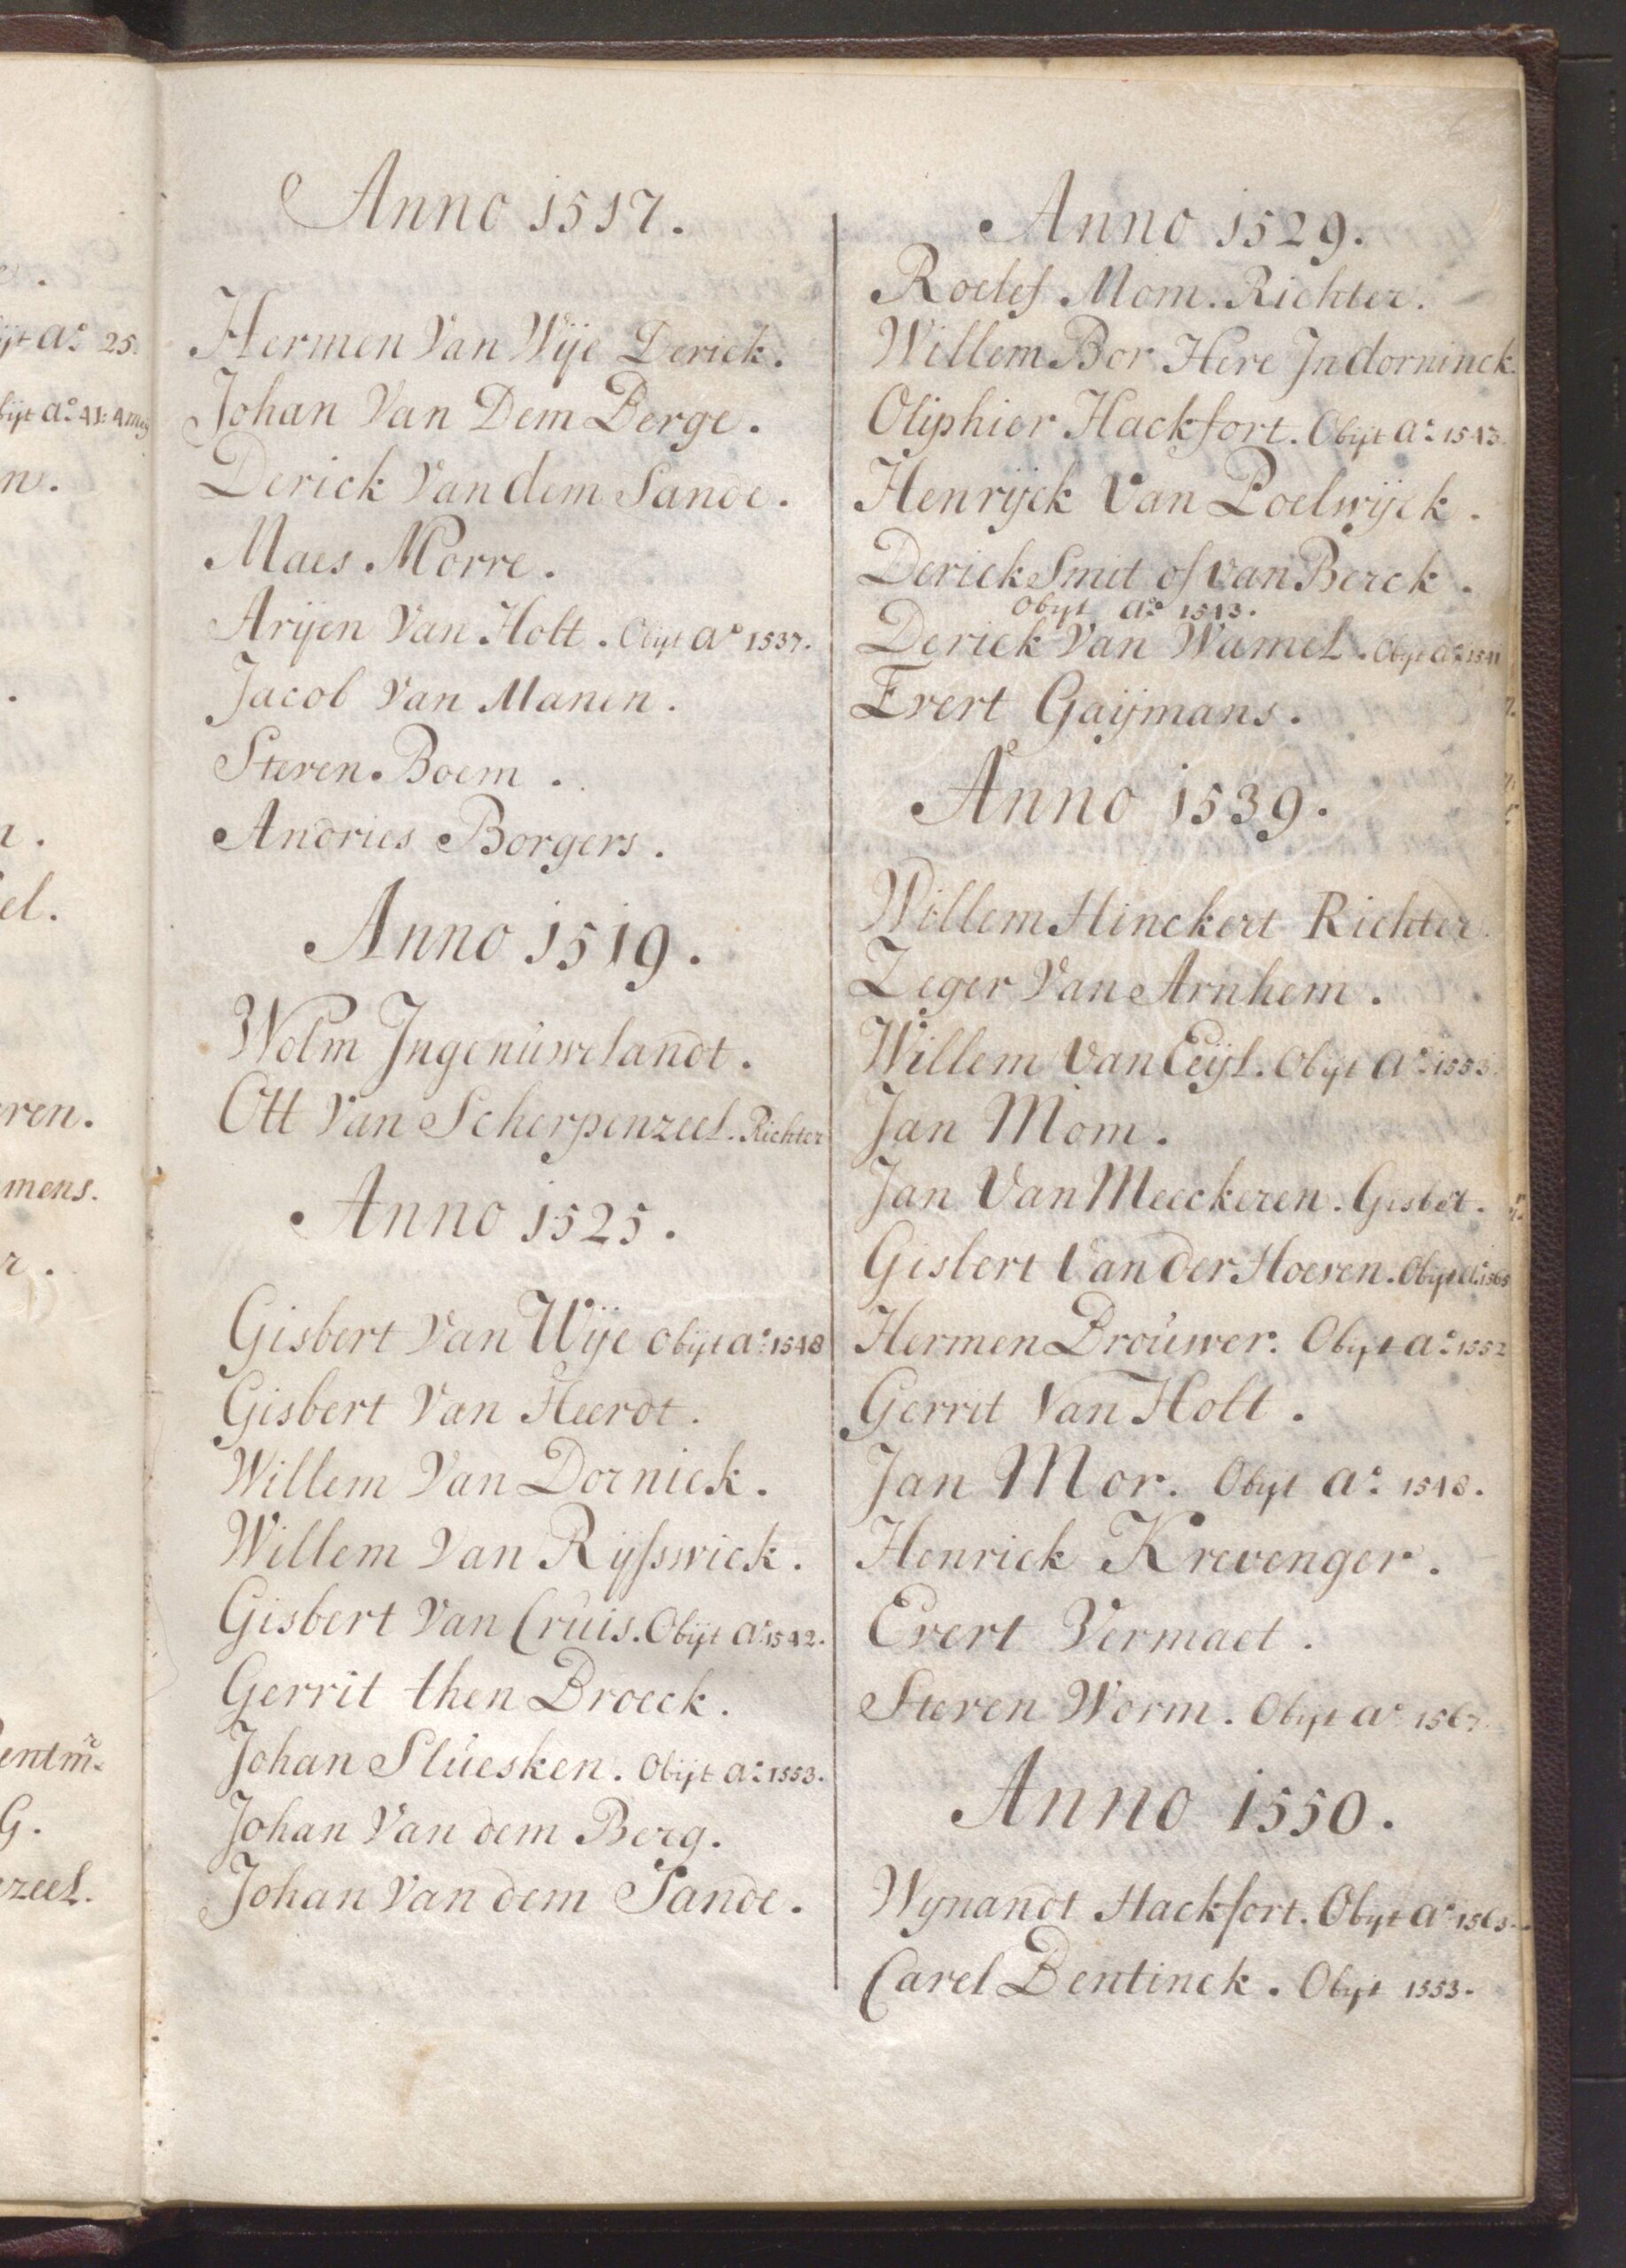 Anno 1517.
Hermen Van Wije Derick.
Johan Van Dem Berge.
Derick Van dem Sande.
Maes Morre.
Arijen Van Holt. Obijt Ao 1537.
Jacob Van Manen.
Steven Boem.
Andries Borgers.
Anno 1519.
Wolm Ingenuwelandt.
Ott Van Scherpenzeel. Richter
Anno 1525.
Gisbert Van Wije Obijt ao: 1548
Gisbert Van Heerdt.
Willem Van Dornick.
Willem Van Rijsswick.
Gisbert Van Cruis. Obijt Ao 1542.
Gerrit then Broeck.
Johan Sluesken. Obijt ao: 1553.
Johan Van dem Berg.
Johan Van dem Sande.
Anno 1529.
Roelef Mom. Richter.
Willem Bor Here Indorninck.
Oliphier Hackfort. Obijt ao: 1543.
Henrijck Van Poelwijck.
Derick Smit of van Berck.
Obijt ao 1543.
Derick Van Wamel. Obijt ao:
Evert Gaijmans.
Anno 1539.
Willem Hinckert Richter.
Zeger Van Arnhem.
Willem Van Eeijl. Obijt Ao: 1553.
Jan Mom.
Jan Van Meeckeren. Gisbert.
Gisbert Van der Hoeven. Obijt ao: 1565
Hermen Brouwer. Obijt ao: 1552
Gerrit Van Holt.
Jan Mor. Obijt ao: 1548.
Henrick Krevenger.
Evert Vermaet.
Steven Worm. Obijt ao 1567.
Anno 1550.
Wynandt Hackfort. Obijt ao:
Carel Bentinck. Obijt 1553.